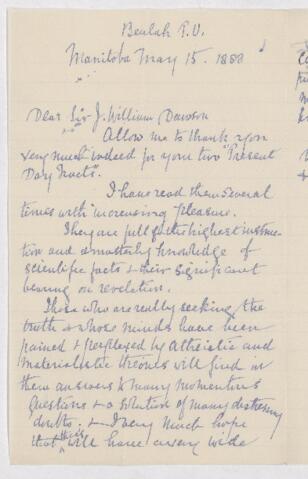 Beulah P.O.
Manitoba May 15. 1888
Dear Sir J. William Dawson
Allow me to thank you
very much indeed for your two "Present
Day Tracts".
I have read them several
times with increasing pleasure.
They are full of the highest instruc-
tion and a masterly knowledge of
scientific facts & their significant
bearing on revelation.
Those who are really seeking the
truth & whose minds have been
pained & perplexed by Atheistic and
materialistic theories will find in
them answers to many momentous
questions & a solution of many distressing
doubts. & I very much hope
that they will have a very wide